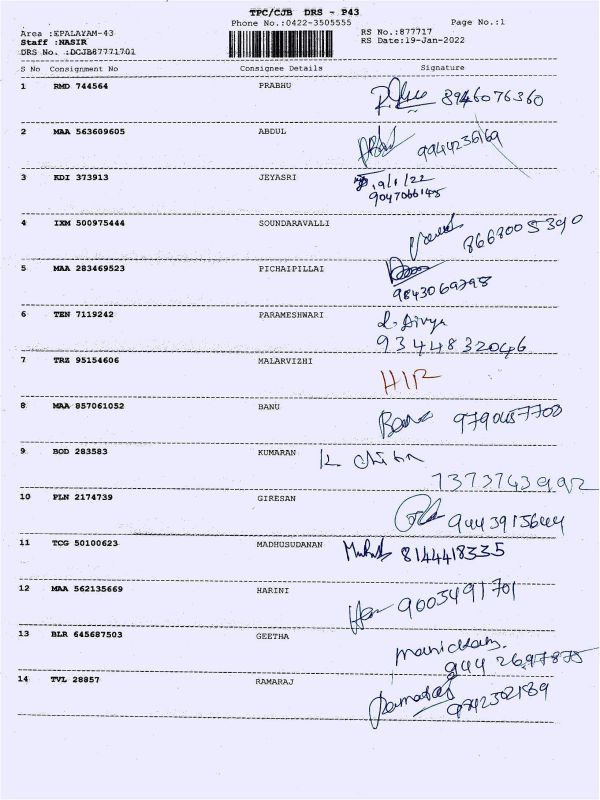 TPC/CJB DRS - P43
Phone No.:0422-3505555 Page No.:1
Area :EPALAYAM-43 RS No.:877717
Staff :NASIR RS Date:19-Jan-2022
DRS No. :DCJB87771701
S No Consignment No Consignee Details Signature
1 RMD 744564 PRABHU 8946076360
2 MAA 563609605 ABDUL 9944236169
3 KDI 373913 JEYASRI 19/1/22
9047066145
4 IXM 500975444 SOUNDARAVALLI 8668005390
5 MAA 283469523 PICHAIPILLAI
9843069798
6 TEN 7119242 PARAMESHWARI L. Divya
9344832046
7 TRZ 95154606 MALARVIZHI
8 MAA 857061052 BANU Banu 9790457700
9 BOD 283583 KUMARAN
7373743992
10 PLN 2174739 GIRESAN
9443915644
11 TCG 50100623 MADHUSUDANAN 8144418335
12 MAA 562135669 HARINI
9003491701
13 BLR 645687503 GEETHA Manickam
9442697875
14 TVL 28857 RAMARAJ Ramaraj
9842302189